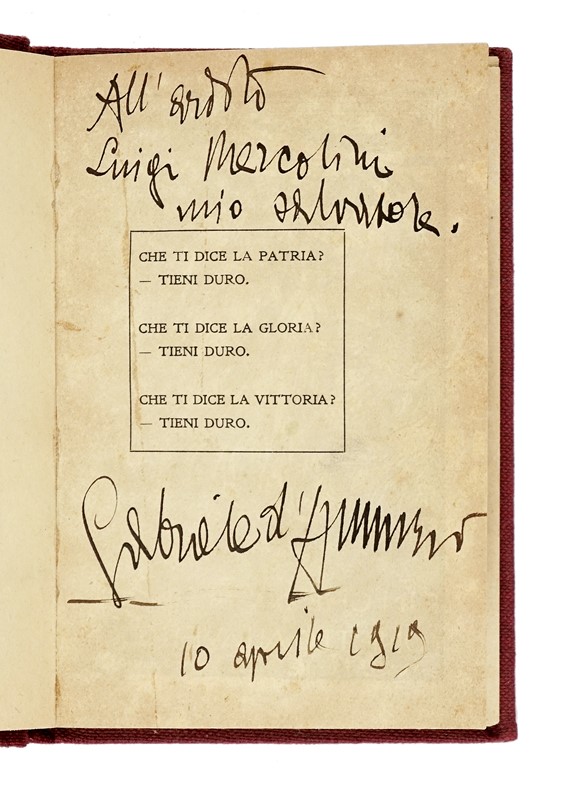 All' ardito
Luigi Mercolini
mio salvatore.
CHE TI DICE LA PATRIA?
— TIENI DURO.
CHE TI DICE LA GLORIA?
— TIENI DURO.
CHE TI DICE LA VITTORIA?
— TIENI DURO.
Gabriele d'Annunzio
10 aprile 1919